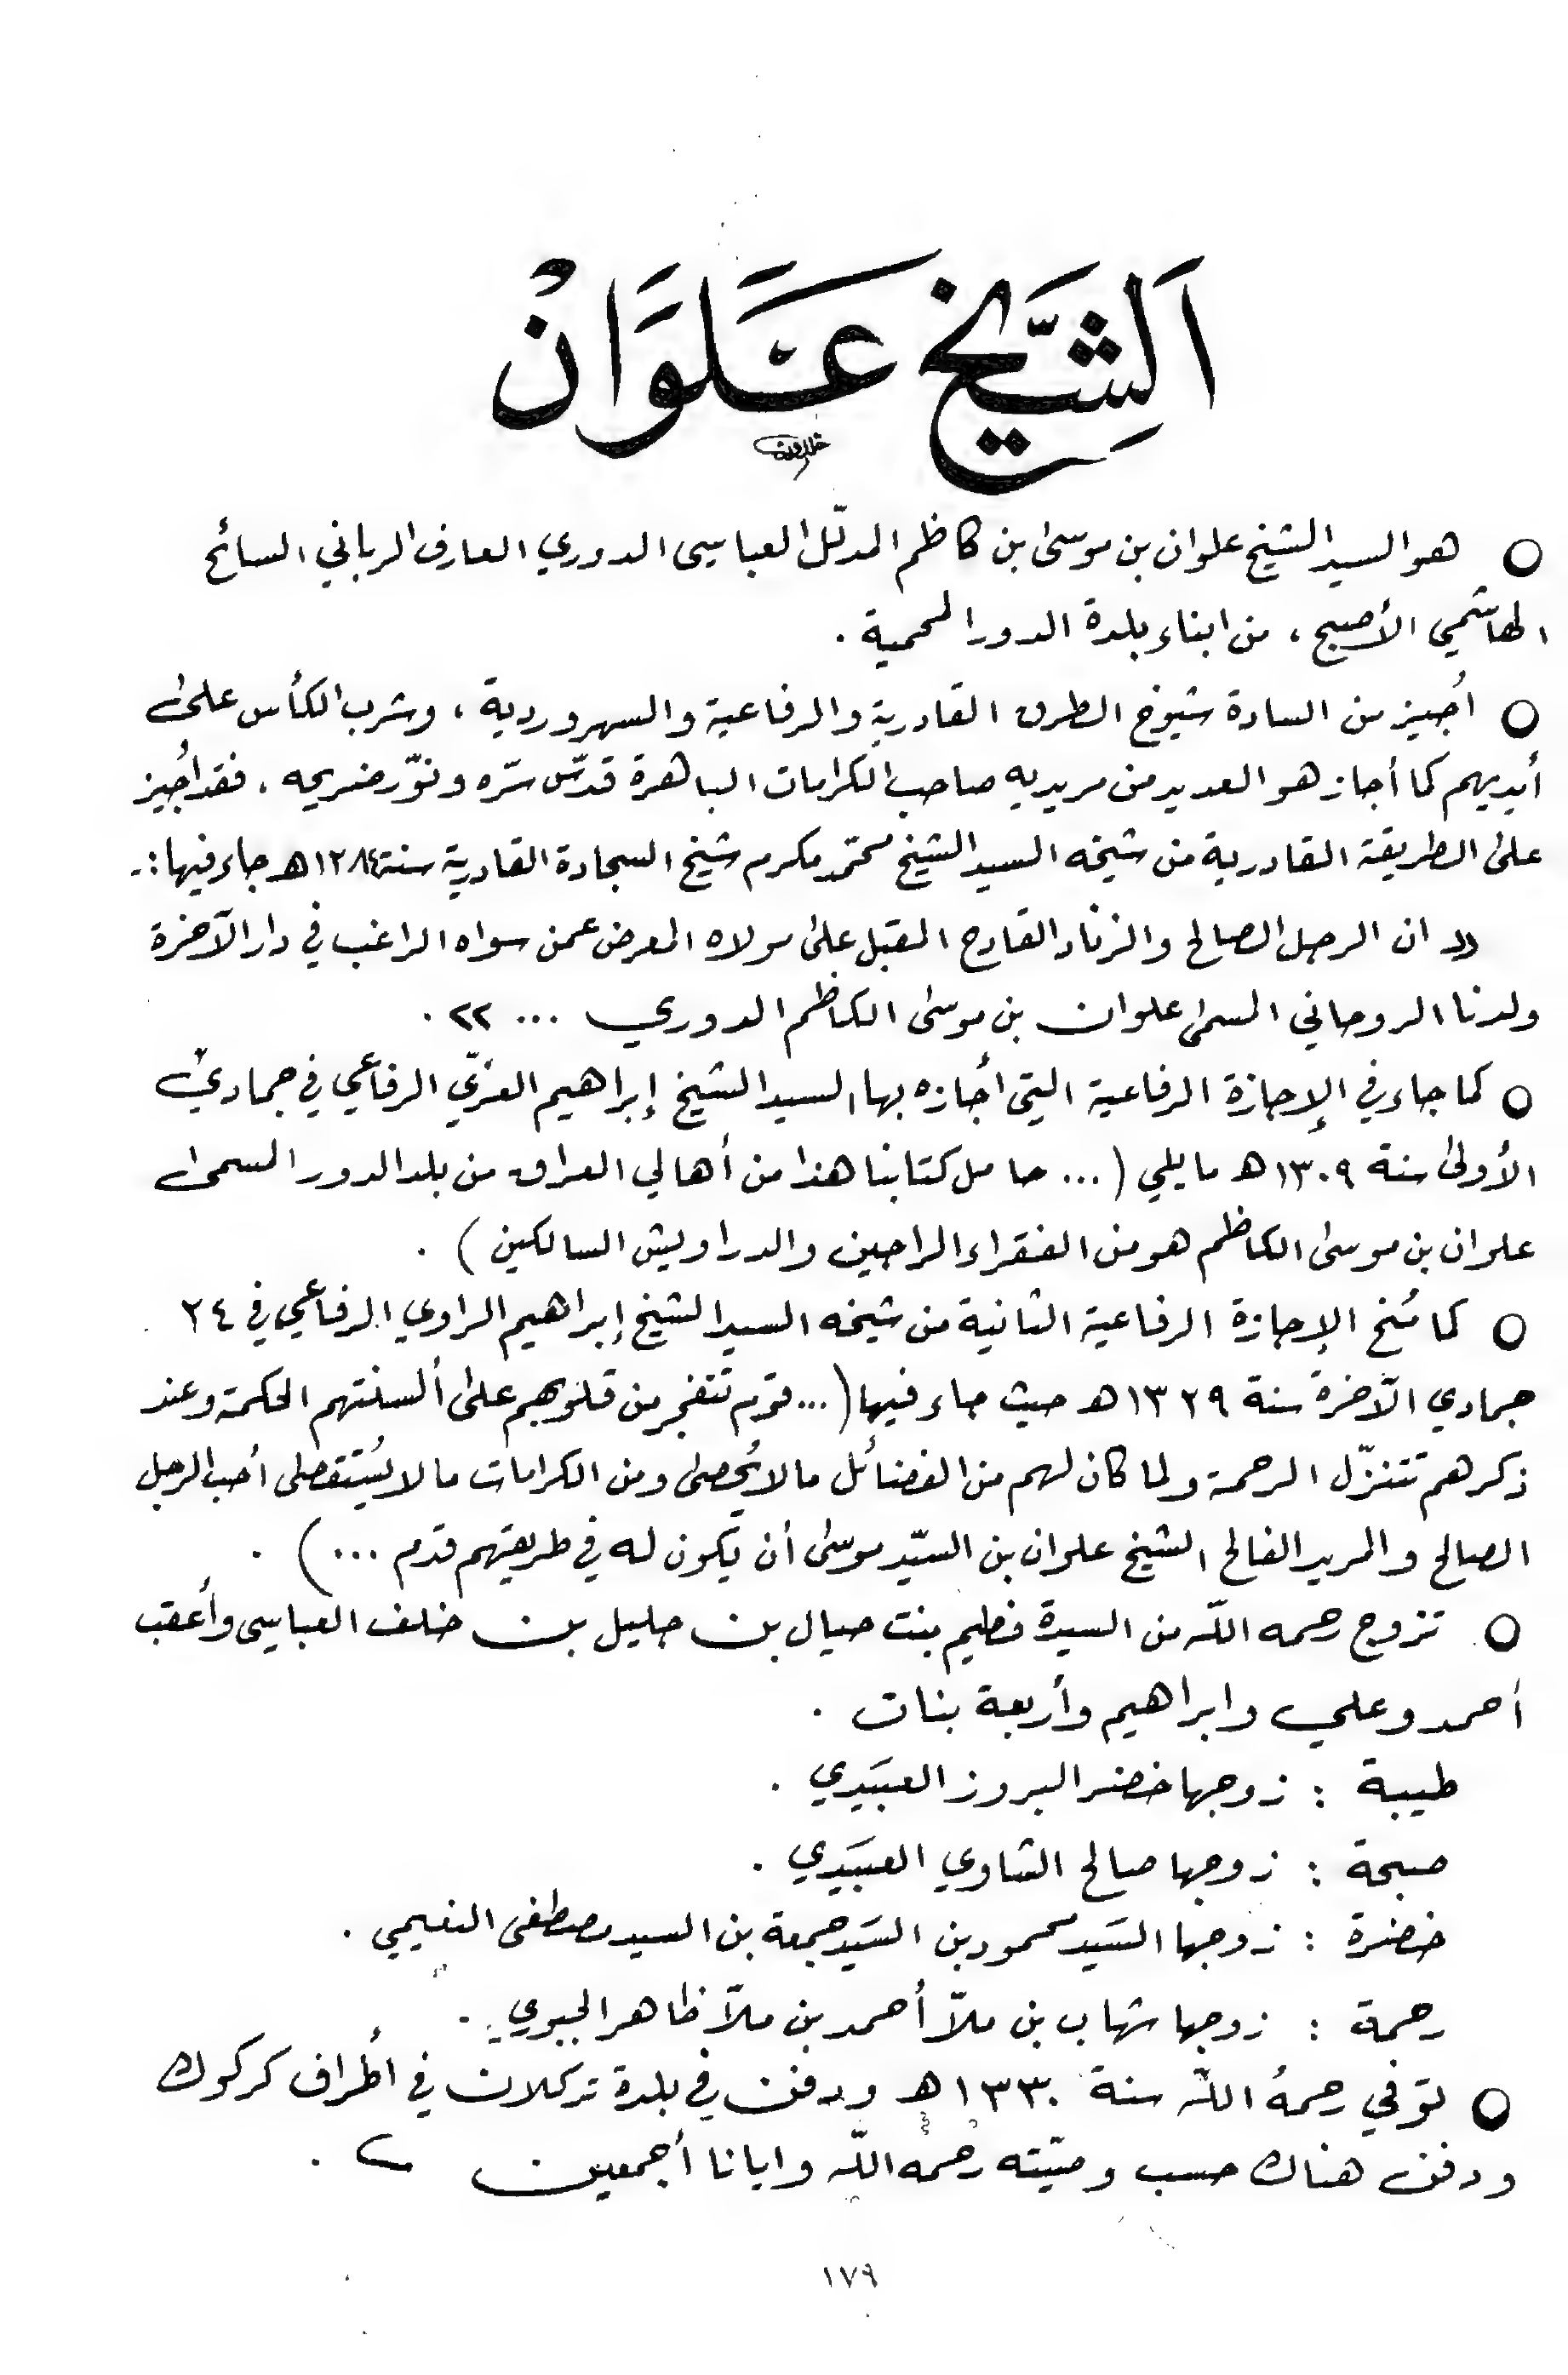 اَلشَّيْخ عَلَوَانْ
خلدون
○ هو السيد الشيخ علوان بن موسىٰ بن كاظم المدلّل العباسي الدوري العارف الرباني السائح
الهاشمي الأصبح ، من ابناء بلدة الدور المحمية .
○ أُجيز من السادة شيوخ الطرق القادرية والرفاعية والسهروردية ، وشرب الكأس علىٰ
أيديهم كما أجاز هو العديد من مريديه صاحب الكرامات الباهرة قدّس سرّه ونوّر ضريحه . فقد أُجيز
علىٰ الطريقة القادرية من شيخه السيد الشيخ محمّد مكرم شيخ السجادة القادرية سنة ١٢٨٤ هـ جاء فيها :-
« ان الرجل الصالح والزناد القادح المقبل علىٰ مولاه المعرض عمن سواه الراغب في دار الآخرة
ولدنا الروحاني المسمىٰ علوان بن موسىٰ الكاظم الدوري ... » .
○ كما جاء في الإجازة الرفاعية التي أجازه بها السيد الشيخ إبراهيم الغزّي الرفاعي في جمادي
الأولىٰ سنة ١٣٠٩ هـ ما يلي ( ... حامل كتابنا هذا من أهالي العراق من بلد الدور المسمىٰ
علوان بن موسىٰ الكاظم هو من الفقراء الراجين والدراويش السالكين ) .
○ كما مُنح الإجازة الرفاعية الثانية من شيخه السيد الشيخ إبراهيم الراوي الرفاعي في ٢٤
جمادي الآخرة سنة ١٣٢٩ هـ حيث جاء فيها ( ... قوم تتفجر من قلوبهم علىٰ ألسنتهم الحكمة وعند
ذكرهم تتنزّل الرحمة ولما كان لهم من الفضائل ما لا يُحصىٰ ومن الكرامات ما لا يُستقصىٰ أحب الرجل
الصالح والمريد الفالح الشيخ علوان بن السيّد موسىٰ أن يكون له في طريقتهم قدم ... ) .
○ تزوج رحمه اللّه من السيدة فطيم بنت حيال بن جليل بن خلف العباسي وأعقب
أحمد وعلي وابراهيم وأربعة بنات .
طيبة : زوجها خضر البروز العبَيدي .
صبحة : زوجها صالح الشاوي العبَيدي .
خضرة : زوجها السَيد محمود بن السَيد جمعة بن السيد مصطفى النعيمي .
رحمة : زوجها شهاب بن ملاّ أحمد بن ملاّ ظاهر الجبوري .
○ توفي رحمهُ اللّه سنة ١٣٣٠ هـ ودفن في بلدة تركلان في أطراف كركوك
ودفن هناك حسب وصيّته رحمه اللّه وايانا أجمعين .
١٧٩